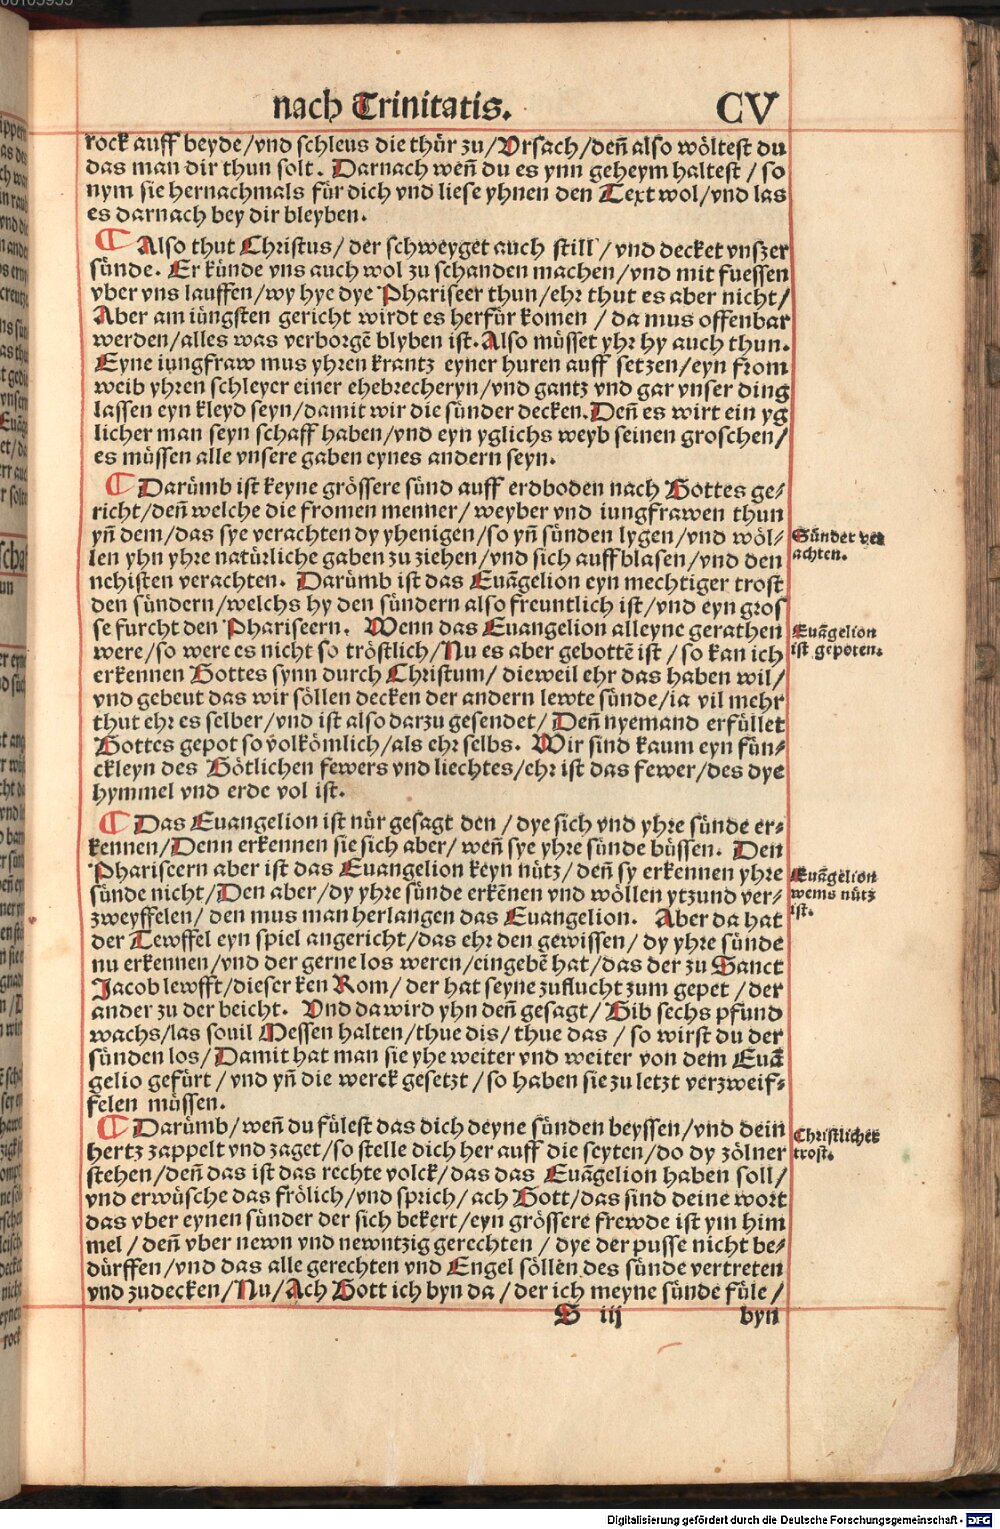 nach Trinitatis. CV
rock auff beyde/vnd schleus die thür zu/Vrsach/deñ also wöltest du
das man dir thun solt. Darnach weñ du es ynn geheym haltest/so
nym sie hernachmals für dich vnd liese yhnen den Text wol/vnd las
es darnach bey dir bleyben.
Also thut Christus/der schweyget auch still/vnd decket vnszer
sünde. Er künde vns auch wol zu schanden machen/vnd mit fuessen
vber vns lauffen/wy hye dye Phariseer thun/ehr thut es aber nicht/
Aber am iüngsten gericht wirdt es herfür komen/da mus offenbar
werden/alles was verborgẽ blyben ist. Also müsset yhr hy auch thun.
Eyne iungfraw mus yhren krantz eyner huren auff setzen/eyn from
weib yhren schleyer einer ehebrecheryn/vnd gantz vnd gar vnser ding
lassen eyn kleyd seyn/damit wir die sünder decken. Deñ es wirt ein yg
licher man seyn schaff haben/vnd eyn yglichs weyb seinen groschen/
es müssen alle vnsere gaben eynes andern seyn.
Darümb ist keyne grössere sünd auff erdboden nach Gottes ge⸗
richt/deñ welche die fromen menner/weyber vnd iungfrawen thun
yñ dem/das sye verachten dy yhenigen/so yñ sünden lygen/vnd wöl⸗
len yhn yhre natürliche gaben zu ziehen/vnd sich auffblasen/vnd den
nehisten verachten. Darümb ist das Euãgelion eyn mechtiger trost
den sündern/welchs hy den sündern also freuntlich ist/vnd eyn gros
se furcht den Phariseern. Wenn das Euangelion alleyne gerathen
were/so were es nicht so tröstlich/Nu es aber gebottẽ ist/so kan ich
erkennen Gottes synn durch Christum/dieweil ehr das haben wil/
vnd gebeut das wir söllen decken der andern lewte sünde/ia vil mehr
thut ehr es selber/vnd ist also darzu gesendet/Deñ nyemand erfüllet
Gottes gepot so volkömlich/als ehr selbs. Wir sind kaum eyn fün⸗
ckleyn des Götlichen fewers vnd liechtes/ehr ist das fewer/des dye
hymmel vnd erde vol ist.
Das Euangelion ist nür gesagt den/dye sich vnd yhre sünde er⸗
kennen/Denn erkennen sie sich aber/weñ sye yhre sünde büssen. Den
Phariseern aber ist das Euangelion keyn nütz/deñ sy erkennen yhre
sünde nicht/Den aber/dy yhre sünde erkẽnen vnd wöllen ytzund ver⸗
zweyffelen/den mus man herlangen das Euangelion. Aber da hat
der Tewffel eyn spiel angericht/das ehr den gewissen/dy yhre sünde
nu erkennen/vnd der gerne los weren/eingebẽ hat/das der zu Sanct
Jacob lewfft/dieser ken Rom/der hat seyne zuflucht zum gepet/der
ander zu der beicht. Vnd da wird yhn deñ gesagt/Gib sechs pfund
wachs/las souil Messen halten/thue dis/thue das/so wirst du der
sünden los/Damit hat man sie yhe weiter vnd weiter von dem Euã
gelio gefürt/vnd yñ die werck gesetzt/so haben sie zu letzt verzweif⸗
felen müssen.
Darümb/weñ du fülest das dich deyne sünden beyssen/vnd dein
hertz zappelt vnd zaget/so stelle dich her auff die seyten/do dy zölner
stehen/deñ das ist das rechte volck/das das Euãgelion haben soll/
vnd erwüsche das frölich/vnd sprich/ach Gott/das sind deine wort
das vber eynen sünder der sich bekert/eyn grössere frewde ist ym him
mel/deñ vber newn vnd newntzig gerechten/dye der pusse nicht be⸗
dürffen/vnd das alle gerechten vnd Engel söllen des sünde vertreten
vnd zudecken/Nu/Ach Gott ich byn da/der ich meyne sünde füle/
S iij byn
Sünder ver
achten.
Euãgelion
ist gepoten.
Euãgelion
wems nütz
ist.
Christlicher
trost.
Digitalisierung gefördert durch die Deutsche Forschungsgemeinschaft - DFG